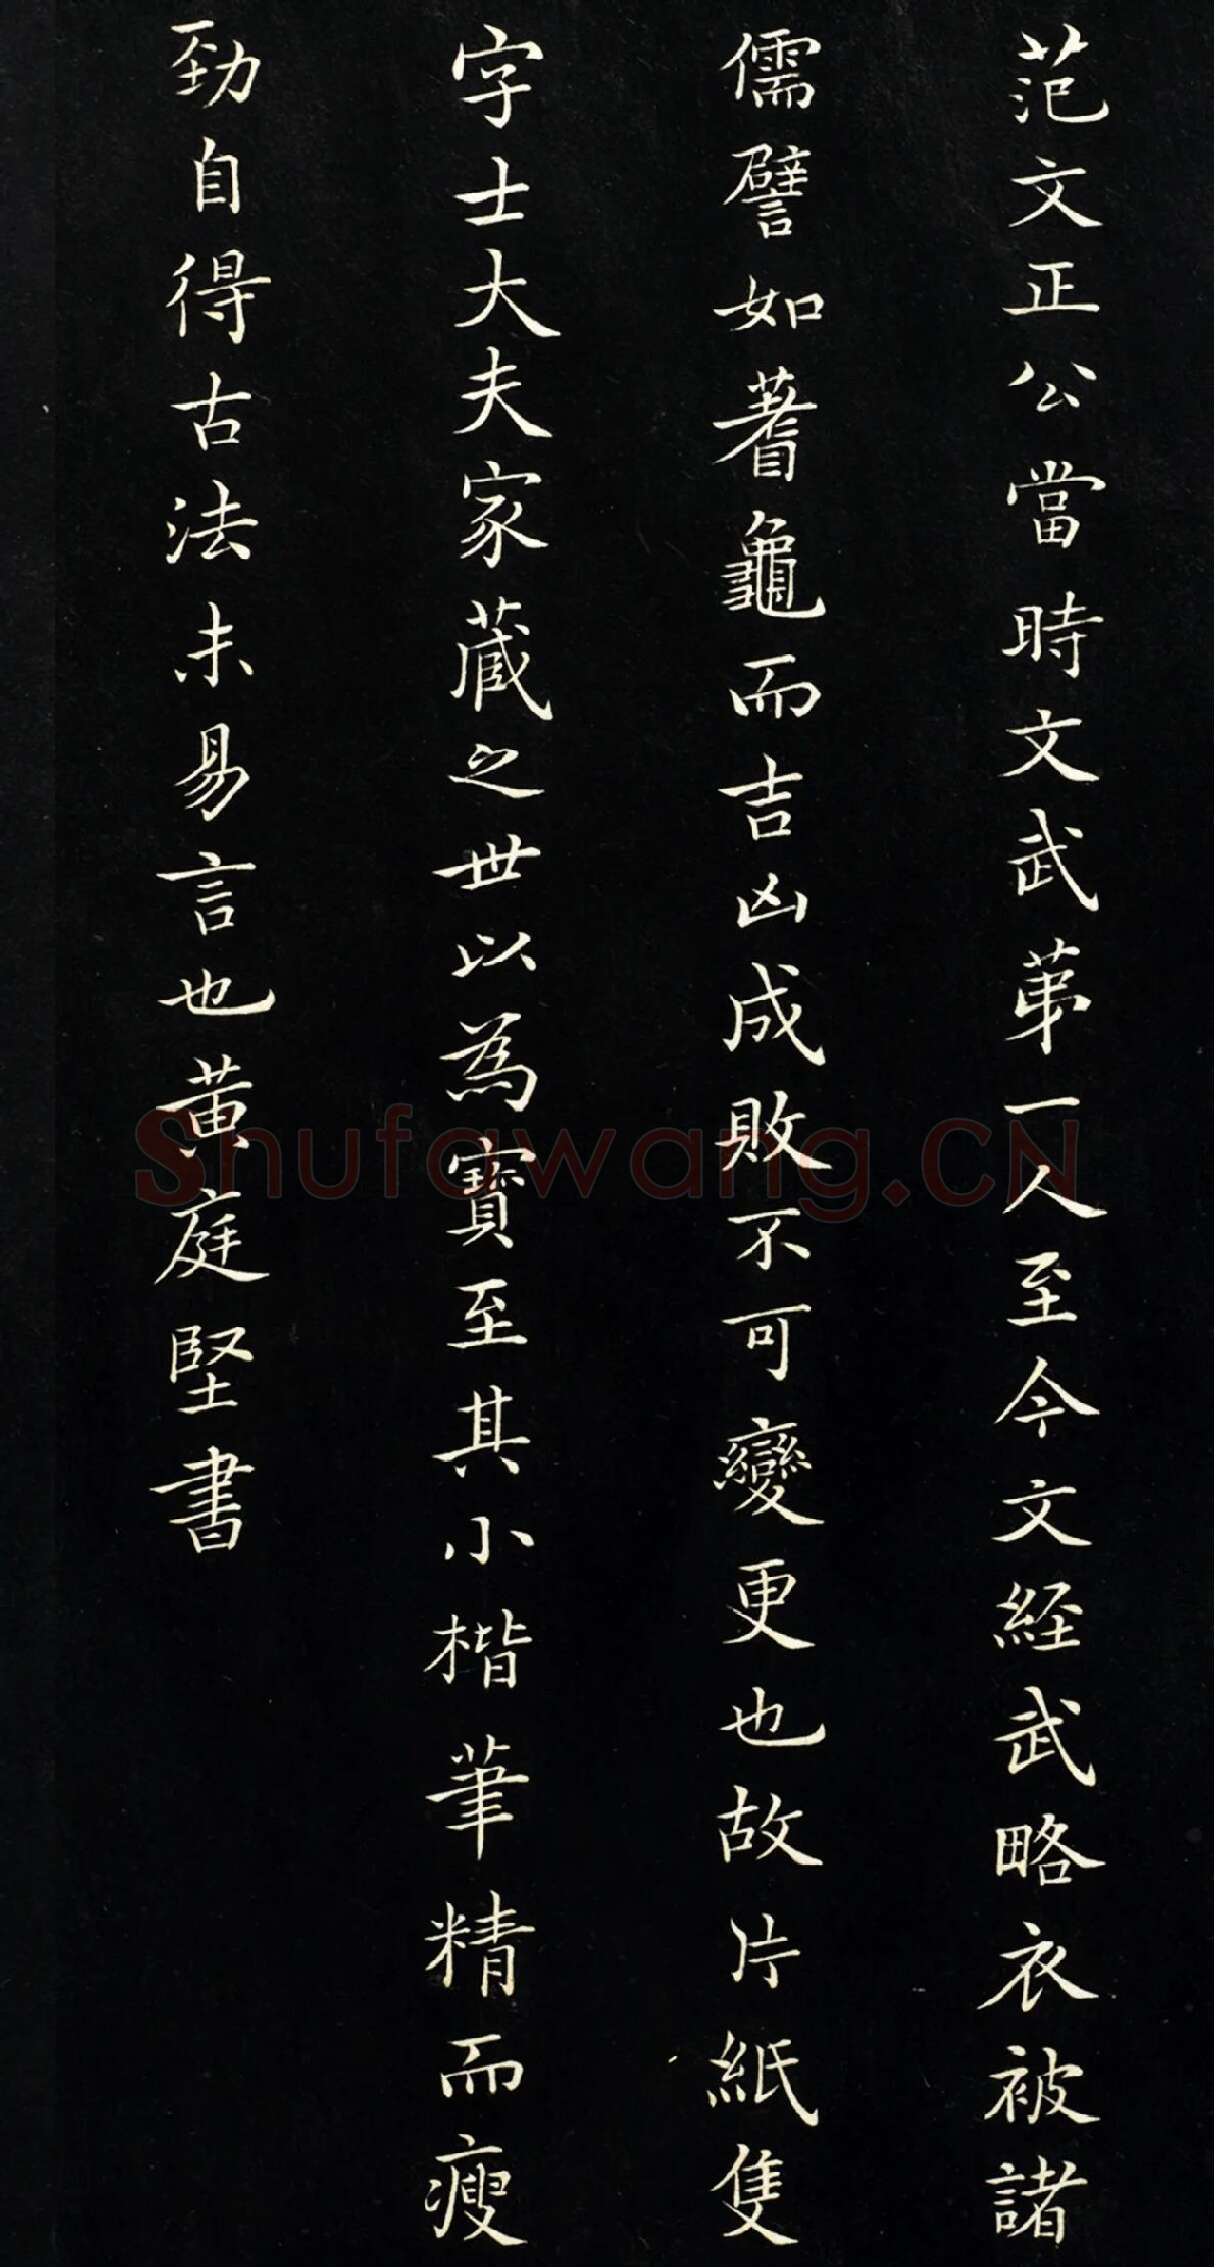 范文正公當時文武苐一人至今文経武略衣被諸
儒譬如蓍龜而吉凶成敗不可變更也故片紙隻
字士大夫家蔵之世以為寳至其小楷筆精而瘦
勁自得古法未易言也黄庭堅書
Shufawang.CN